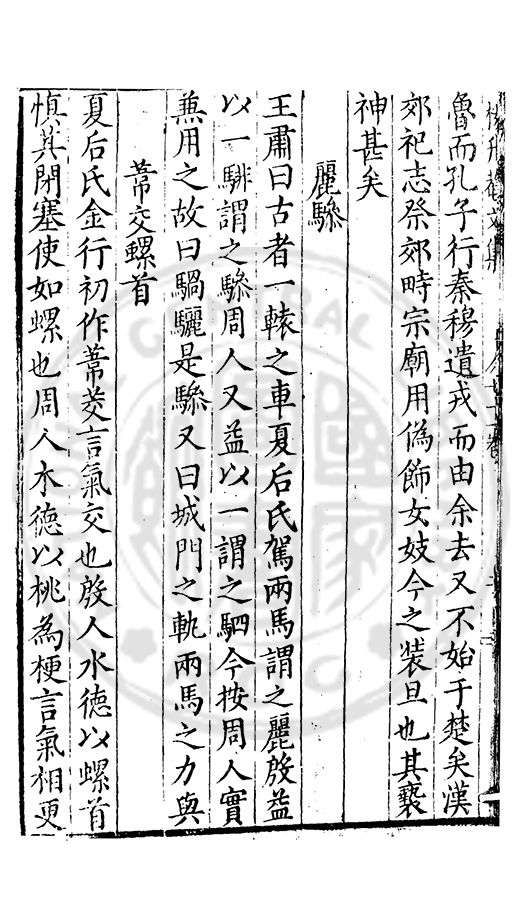 魯而孔子行秦穆遺戎而由余去又不始于楚矣漢
郊祀志祭郊畤宗廟用偽飾女妓今之裝旦也其褻
神甚矣
麗驂
王肅曰古者一轅之車夏后氏駕兩馬謂之麗殷益
以一騑謂之驂周人又益以一謂之駟今按周人實
兼用之故曰騧驪是驂又曰城門之軌兩馬之力與
葦交螺首
夏后氏金行初作葦茭言氣交也殷人水德以螺首
慎其閉塞使如螺也周人木德以桃為梗言氣相更